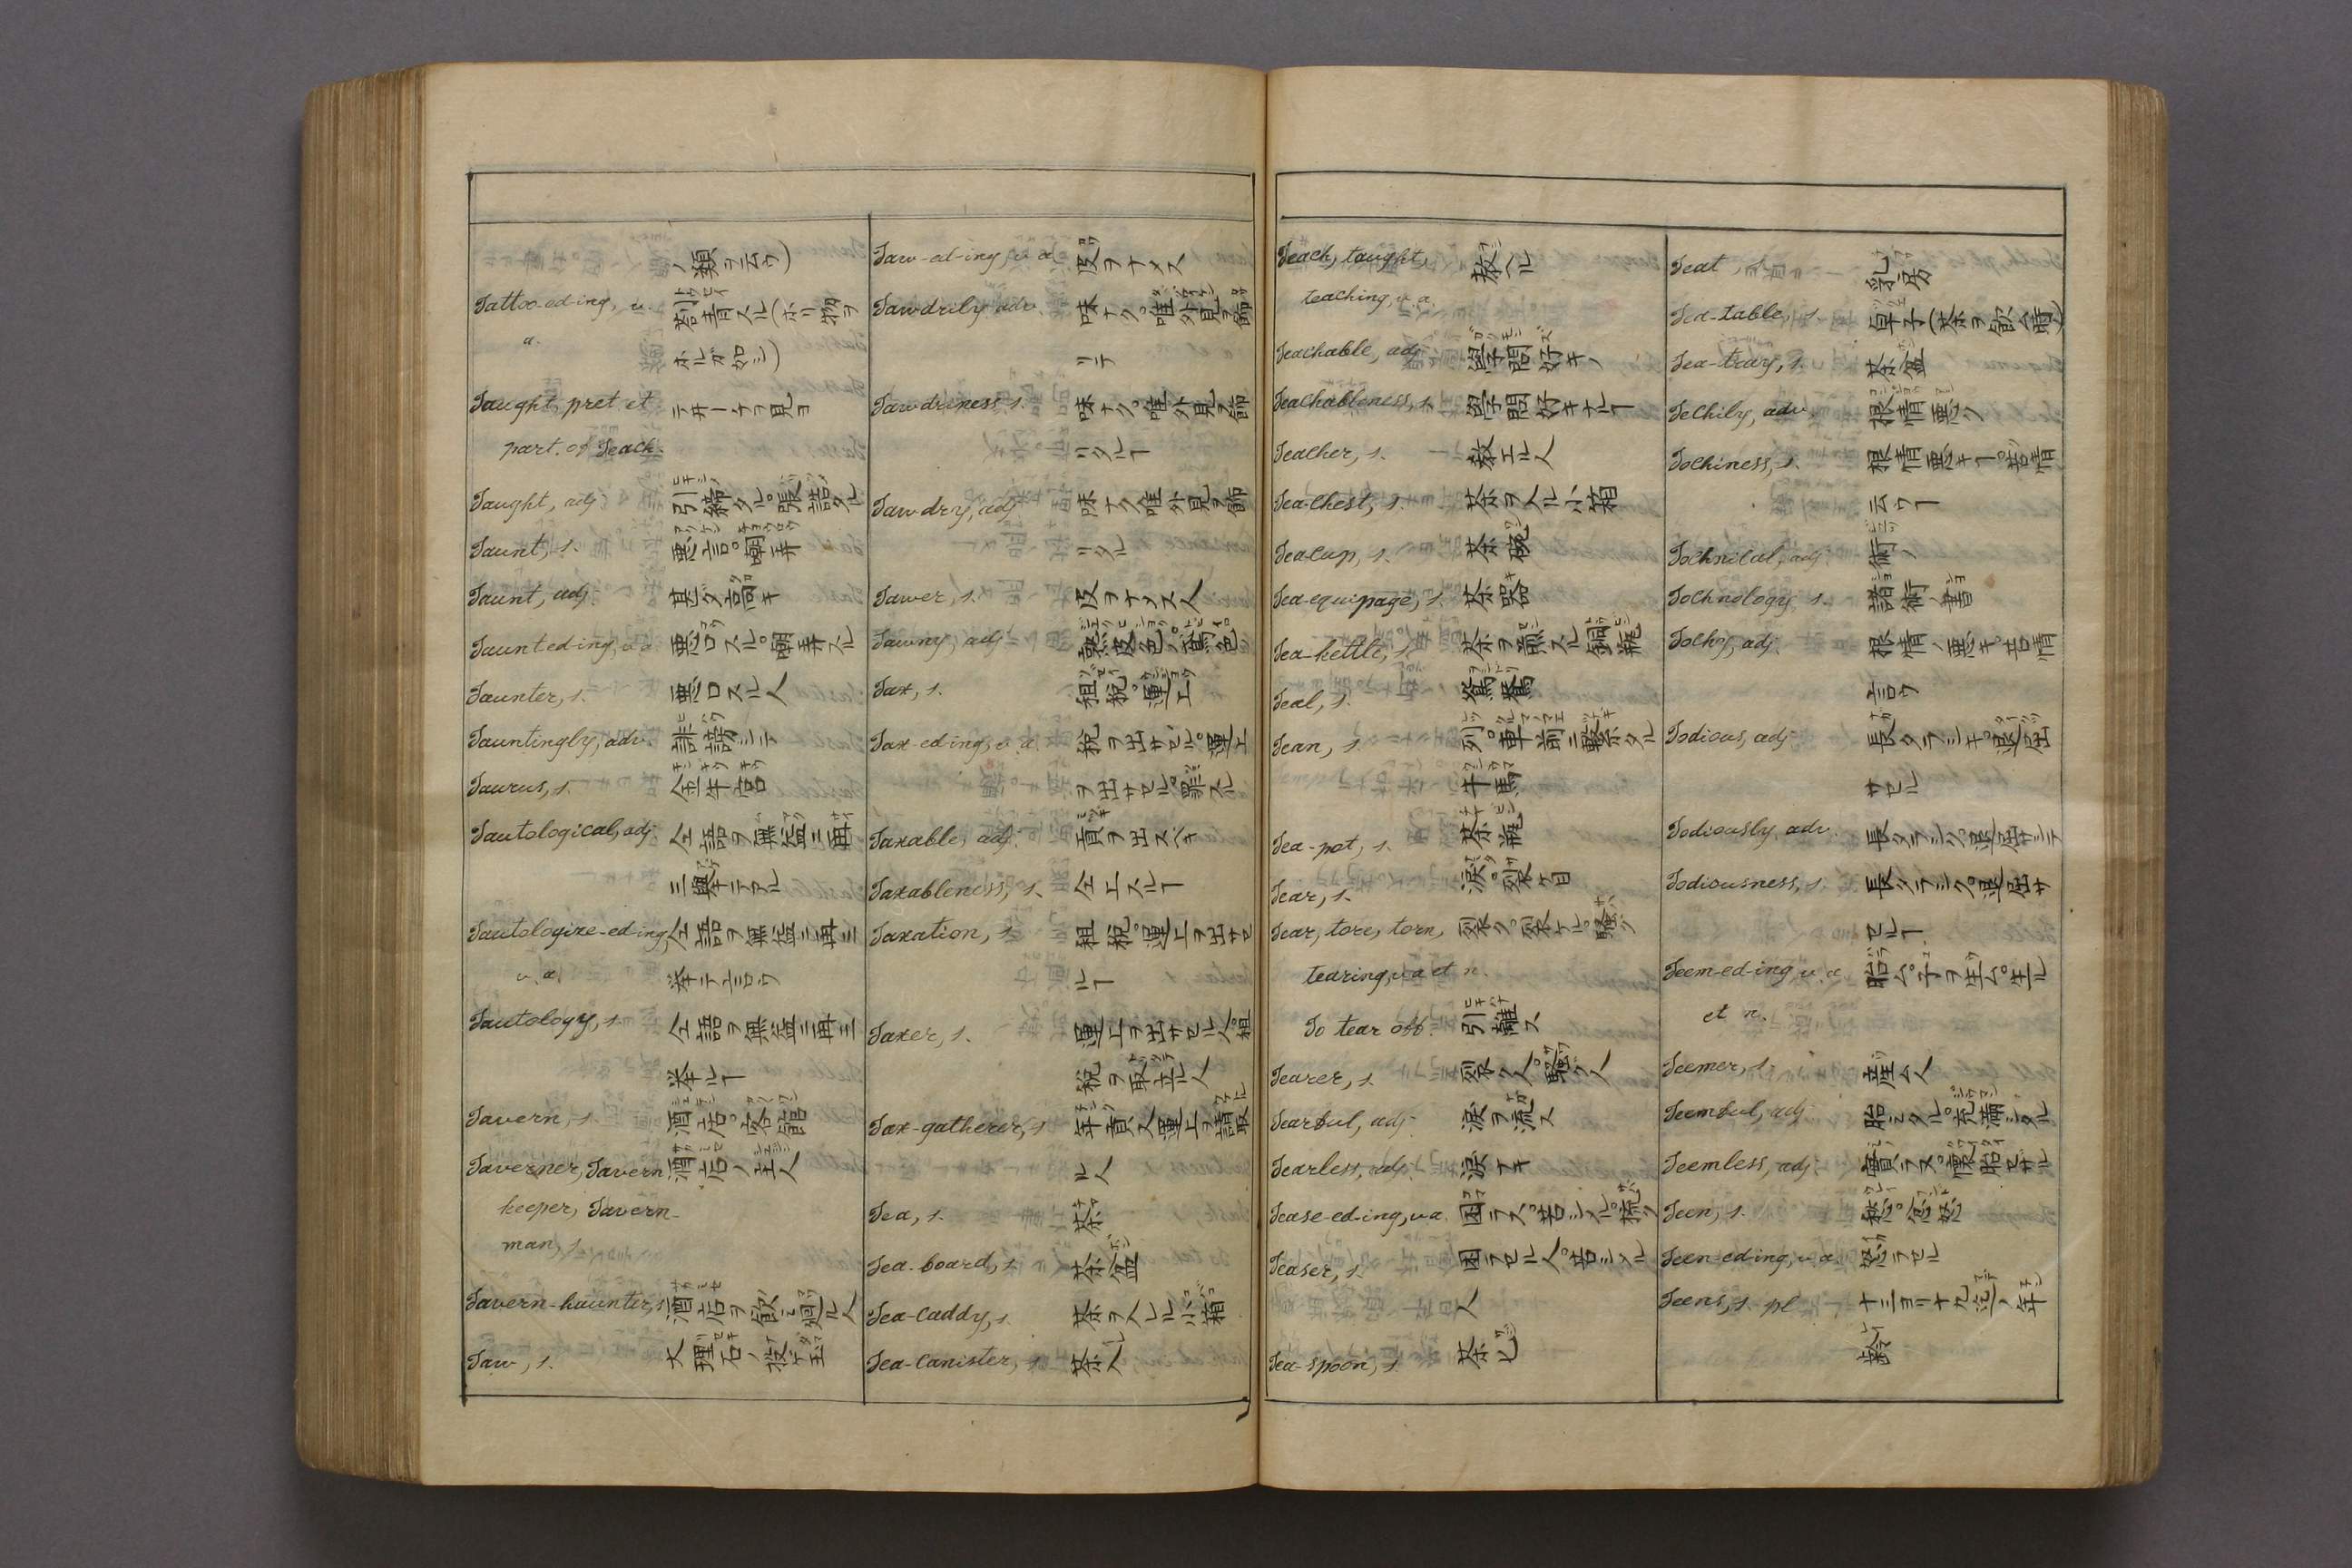 ノ類ヲ云ウ)
Tattoo-ed-ing, v. 劄青スル(ホリ物ヲ
a. ホルガ如シ)
Taught, pret. et テオーケヲ見ヨ
part. of Teach.
Taught, adj. 引締タル。張詰タル
Taunt, s. 悪言。嘲弄
Taunt, adj. 甚ダ高キ
Taunt-ed-ing, v. a. 悪口スル。嘲弄スル
Taunter, s. 悪口スル人
Tauntingly, adv. 誹謗シテ
Taurus, s. 金牛宮
Tautological, adj. 仝語ヲ無益ニ再
三挙テアル
Tautologize-ed-ing, 仝語ヲ無益ニ再三
v. a. 挙テ言ウ
Tautology, s. 仝語ヲ無益ニ再三
挙ルヿ
Tavern, s. 酒店。客館
Taverner, Tavern 酒店ノ主人
keeper, Tavern-
man, s.
Tavern-haunter, s. 酒店ヲ飲ミ廻ル人
Taw, s. 大理石ノ投ゲ玉
Taw-ed-ing, v. a. 皮ヲナメス
Tawdrily, adv. 味ナク。唯外見ヲ飾
リテ
Tawdriness, s. 味ナク。唯外見ヲ飾
リタルヿ
Tawdry, adj. 味ナク唯外見ヲ飾
リタル
Tawer, s. 皮ヲナメス人
Tawny, adj.
Tax, s. 租税。運上
Tax-ed-ing, v. a. 税ヲ出サセル。運上
ヲ出サセル。罪スル
Taxable, adj. 貢ヲ出スベキ
Taxableness, s. 仝上スルヿ
Taxation, s. 租税。運上ヲ出サセ
ルヿ
Taxer, s. 運上ヲ出サセル人。租
税ヲ取立ル人
Tax-gatherer, s. 年貢又運上ヲ請取
ル人
Tea, s. 茶
Tea-board, s. 茶盆
Tea-caddy, s. 茶ヲ入レル小箱
Tea-canister, s. 茶入
Teach, taught, 教ヘル
teaching, v. a.
Teachable, adj. 學問好キノ
Teachableness, s. 學問好キナルヿ
Teacher, s. 教エル人
Tea-chest, s. 茶ヲ入ル小箱
Tea-cup, s. 茶碗
Tea-equipage, s. 茶器
Tea-kettle, s. 茶ヲ煎スル銅瓶
Teal, s. 鴛鴦
Tean, s. 列。車前ニ繋ギタル
牛馬
Tea-pot, s. 茶瓶
Tear, s. 涙。裂ケ目
Tear, tore, torn, 裂ク。裂ケル。騒グ
tearing, v. a. et n.
To tear off. 引離ス
Tearer, s. 裂ク人。騒グ人
Tearful, adj. 涙ヲ流ス
Tearless, adj. 涙ナキ
Tease-ed-ing, v. a. 困ラス。苦シメル。梳ク
Teaser, s. 困ラセル人。苦シメル
人
Tea-spoon, s. 茶匕
Teat, s. 乳房
Tea-table, s. 卓子(茶ヲ飲ム時)
Tea-tray, s. 茶盆
Techily, adv. 根情悪ク
Techiness, s. 根情悪キヿ。苦情
云ウヿ
Technical, adj. 術ノ
Technology, s. 諸術ノ書
Techy, adj. 根情ノ悪キ。苦情
言ウ
Tedious, adj. 長タラシキ。退屈
サセル
Tediously, adv. 長タラシク。退屈サシテ
Tediousness, s. 長タラシク。退屈サ
セルヿ
Teem-ed-ing, v. a. 胎ム。子ヲ生ム。生ル
et n.
Teemer, s. 産ム人
Teemful, adj. 胎ミタル。充満シタル
Teemless, adj. 實ラヌ。懐胎セザル
Teen, s. 愁。忿怒
Teen-ed-ing, v. a. 怒ラセル
Teens, s. pl. 十三ヨリ十九迄ノ年
齢